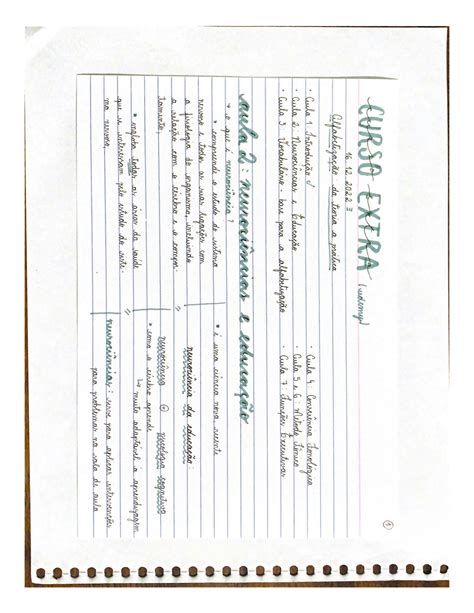 ①
CURSO EXTRA (udemy)
16.12.2022
Alfabetização da teoria a prática
• Aula 1: Introdução
• Aula 2: Neurociências e Educação
• Aula 3: Vocabulário: base para a alfabetização
• Aula 4: Consciência Fonológica
• Aula 5 e 6: Método Fônico
• Aula 7: Funções Executivas
aula 2: neurociências e educação
→ o que é neurociência?
• compreende o estudo do sistema
nervoso e todas as suas ligações com
a fisiologia do organismo, incluindo
a relação com o cérebro e o compor-
tamento;
• engloba todas as áreas da saúde
que se interessam pelo estudo do siste-
ma nervoso.
• é uma ciência nova, recente
neurociência da educação:
neurociência + psicologia cognitiva
• como o cérebro aprende
↳ muito adaptável à aprendizagem
neurociências: serve para aplicar intervenções
para problemas na sala de aula